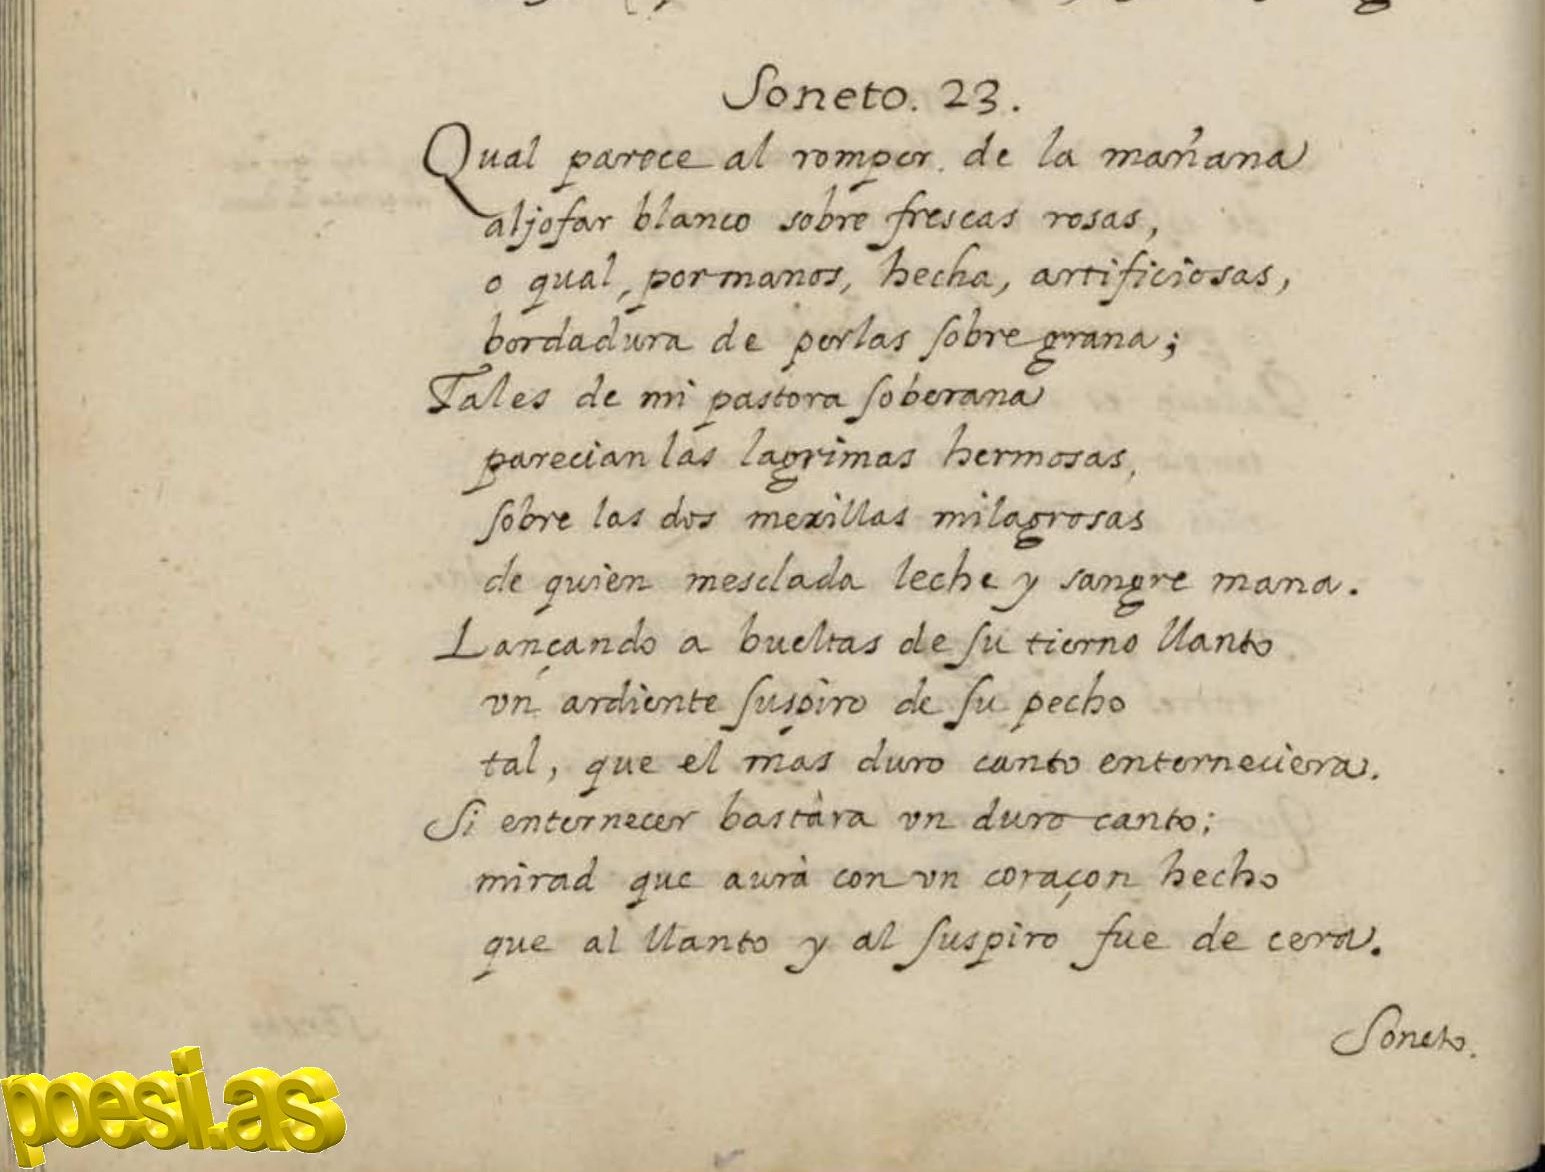 Soneto. 23.
Qual parece al romper de la mañana
aljofar blanco sobre frescas rosas,
o qual, por manos, hecha, artificiosas,
bordadura de perlas sobre grana;
Tales de mi pastora soberana
parecian las lagrimas hermosas,
sobre las dos mexillas milagrosas
de quien mesclada leche y sangre mana.
Lançando a bueltas de su tierno llanto
vn ardiente suspiro de su pecho
tal, que el mas duro canto enterneciera.
Si enternecer bastàra vn duro canto;
mirad que aurà con vn coraçon hecho
que al llanto y al suspiro fue de cera.
Soneto.
poesi.as